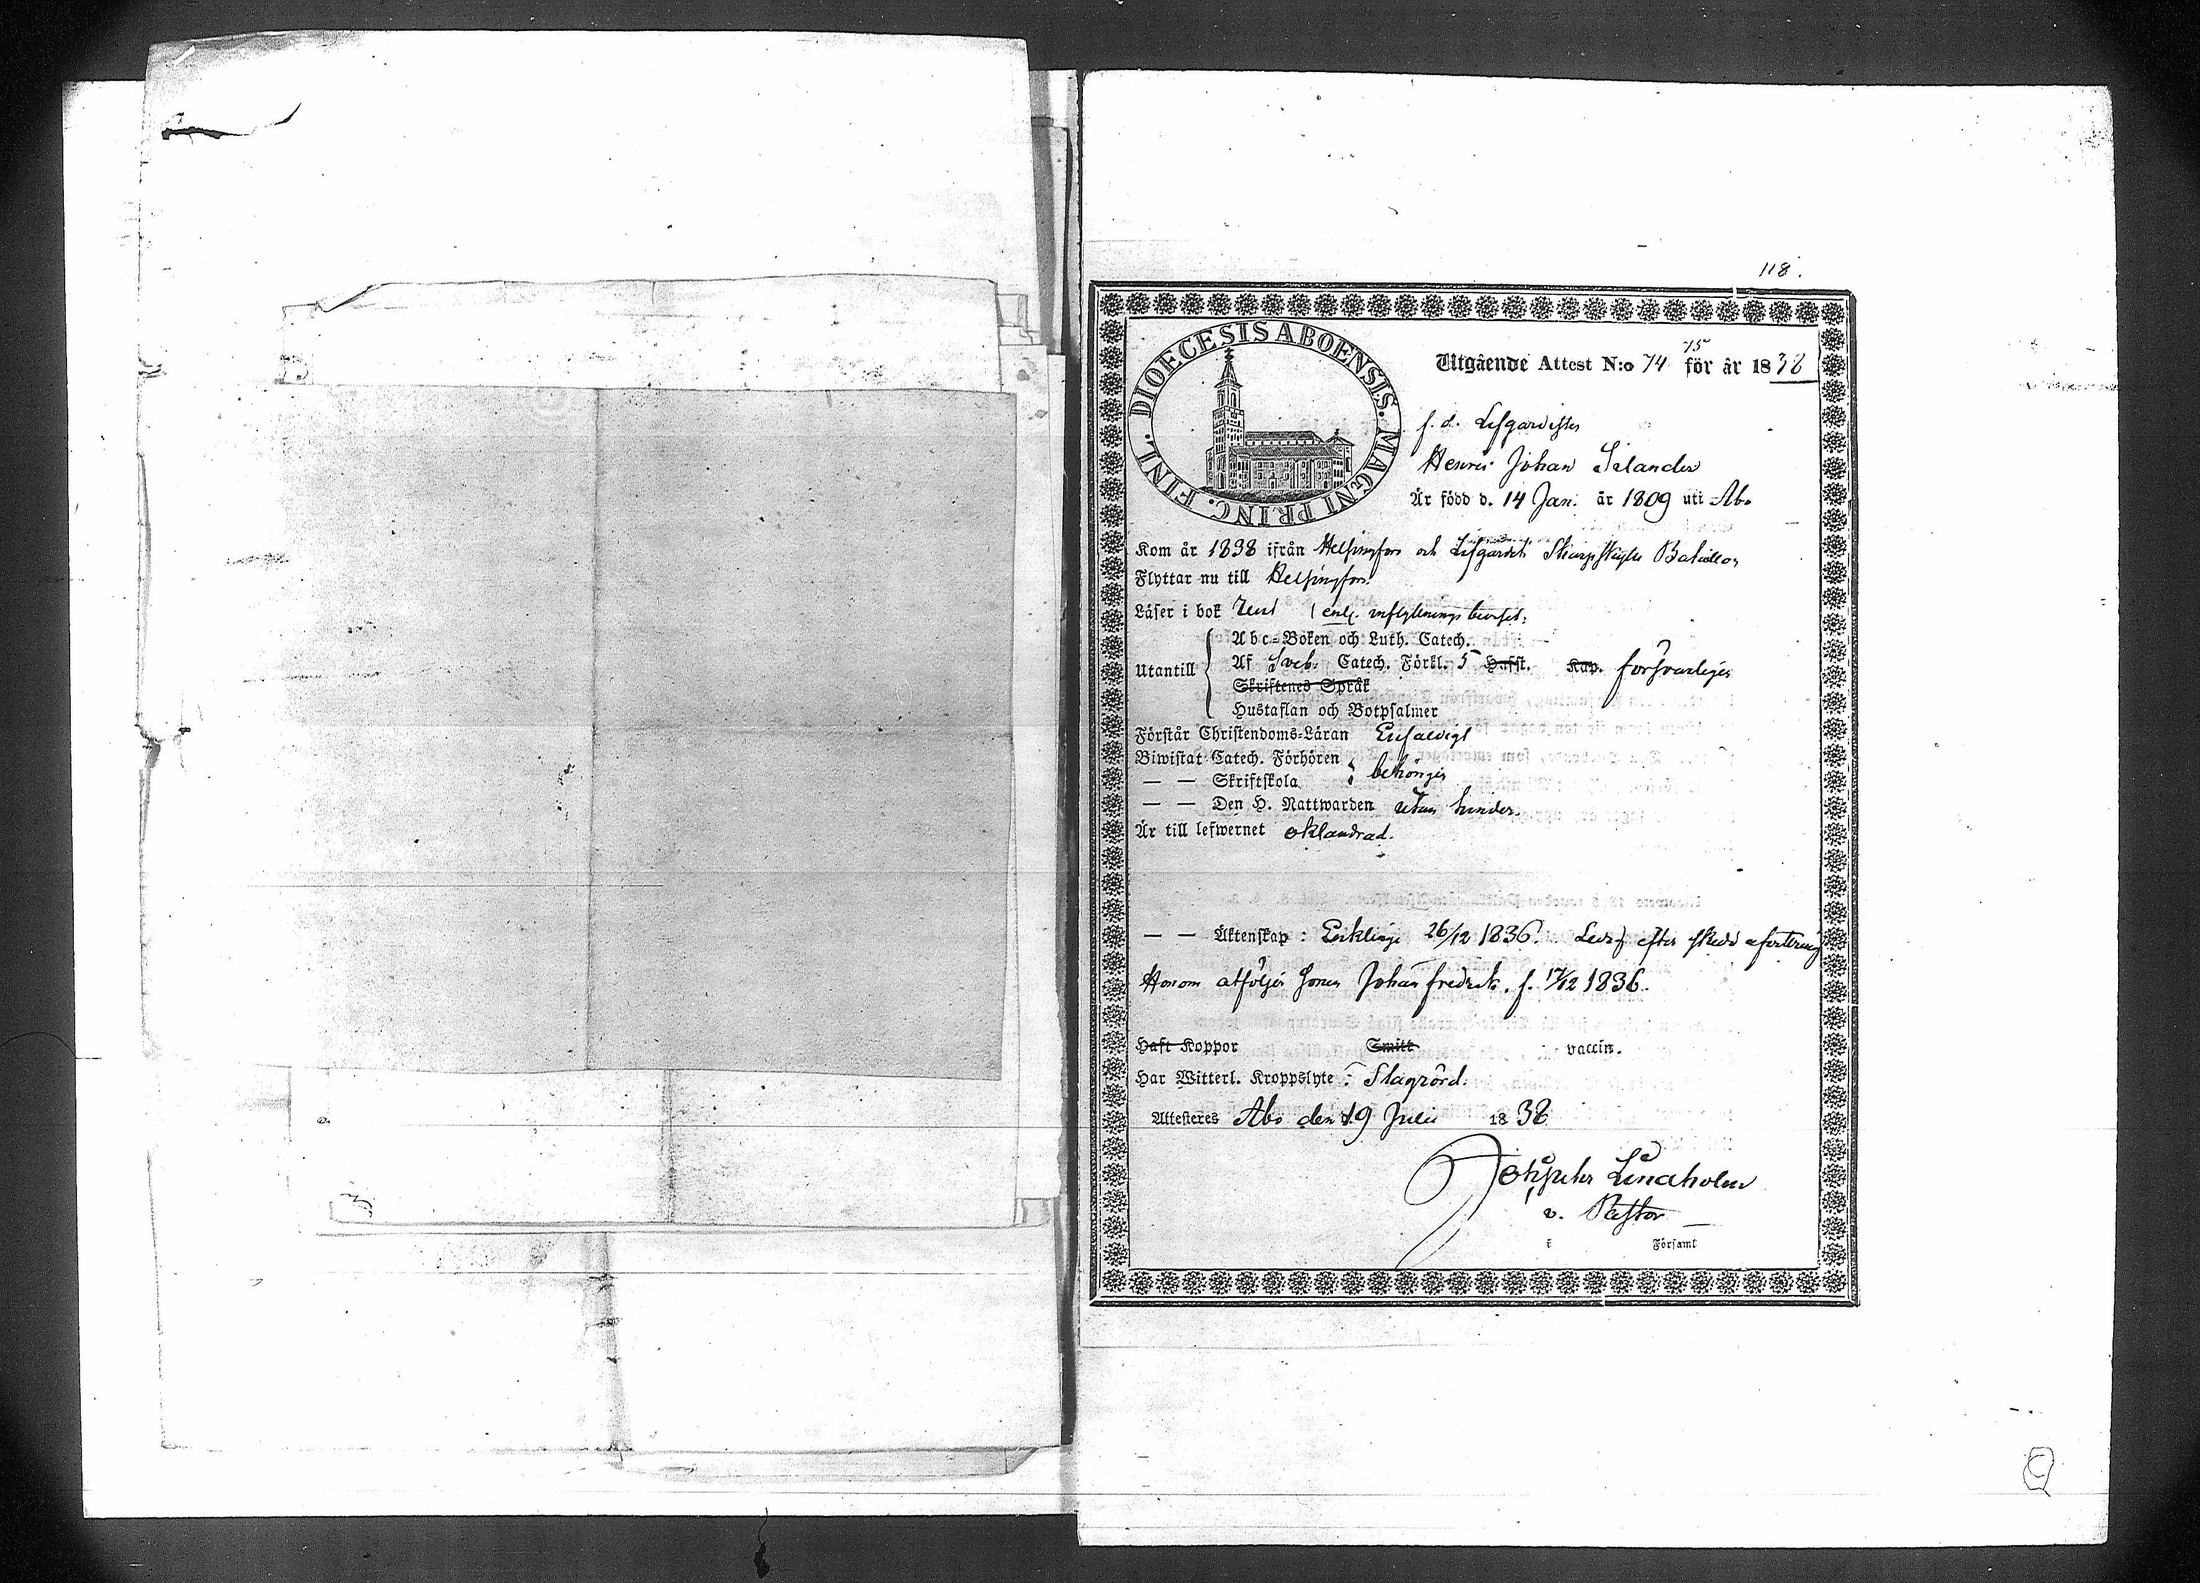 118.
DIOECESIS ABOENSIS. MAGNI PRINC. FINL.
75
Utgående Attest N:o 74 för år 1838
f. d. Lifgardisten
Henric Johan Selander
Är född d. 14 Jan. år 1809 uti Åbo
Kom år 1838 ifrån Helsingfors och Lifgardets Skarpskytte Bataillon
Flyttar nu till Helsingfors.
Läser i bok rent enl. inflyttnings beviset:
Abc-Boken och Luth. Catech.
Utantill Af Sveb. Catech. Förkl. 5 Hufst. Kap. försvarligen
Skriftenes Språk
Hustaflan och Botpsalmer
Förstår Christendoms-Läran Enfaldigt
Biwistat Catech. Förhören
— — Skriftskola behörigen
— — Den H. Nattwarden utan hinder.
Är till lefwernet oklandrad.
— — Äktenskap: Enkling 26/12 1836. Ledig efter skedd afvittring
Honom åtföljer sonen Johan Fredrik. f. 17/12 1836.
Haft Koppor Smitt vaccin.
Har Witterl. Kroppslyte:
Attesteres Åbo den 19 Julii 1838
Lindholm
v. Pastor
i Församl